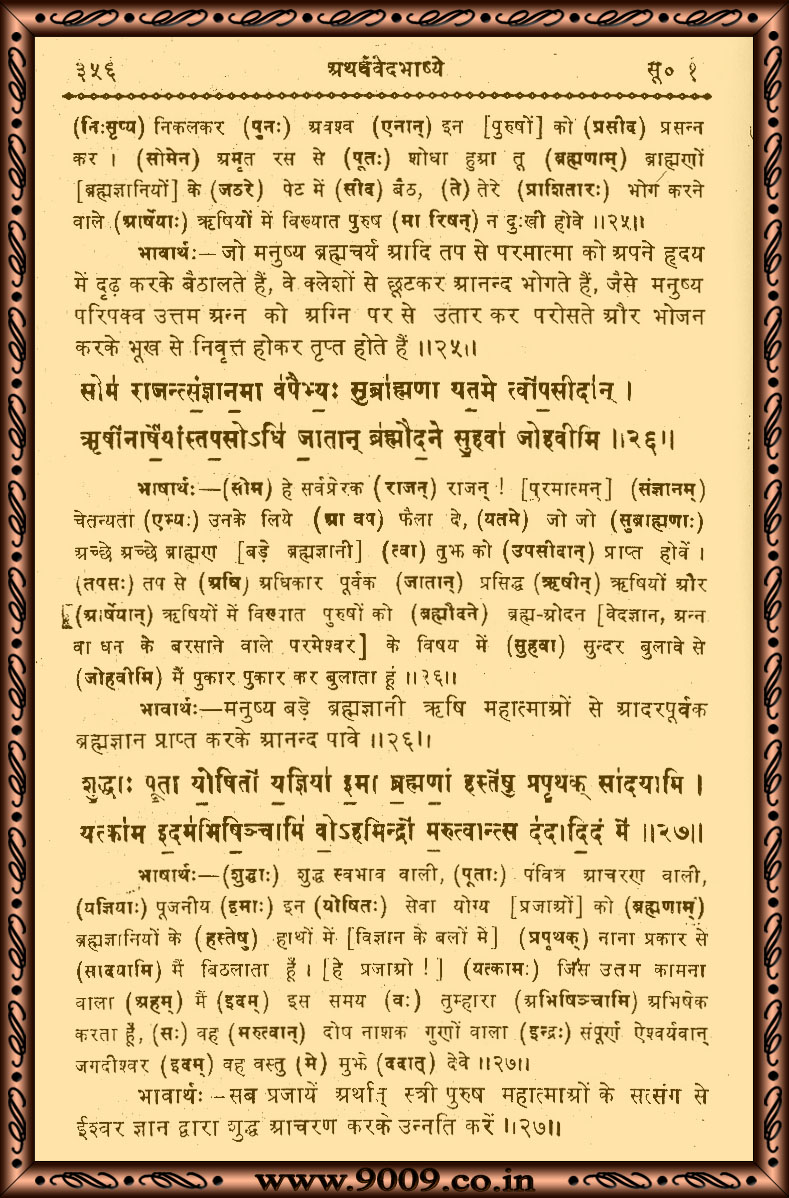 ३५६ अथर्ववेदभाष्ये सू० १
(निःसृप्य) निकलकर (पुनः) अवश्य (एनान्) इन [पुरुषों] को (प्रसीद) प्रसन्न
कर । (सोमेन) अमृत रस से (पूतः) शोधा हुआ तू (ब्रह्मणाम्) ब्राह्मणों
[ब्रह्मज्ञानियों] के (जठरे) पेट में (सीद) बैठ, (ते) तेरे (प्राशितारः) भोग करने
वाले (आर्षेयाः) ऋषियों में विख्यात पुरुष (मा रिषन्) न दुःखी होवें ॥२५॥
भावार्थः—जो मनुष्य ब्रह्मचर्य आदि तप से परमात्मा को अपने हृदय
में दृढ़ करके बैठालते हैं, वे क्लेशों से छूटकर आनन्द भोगते हैं, जैसे मनुष्य
परिपक्व उत्तम अन्न को अग्नि पर से उतार कर परोसते और भोजन
करके भूख से निवृत्त होकर तृप्त होते हैं ॥२५॥
सोम॑ राजन्त्सं॒ज्ञान॒मा व॑पैभ्यः॒ सुब्रा॑ह्मणा यत॒मे त्वो॑प॒सीदा॑न् ।
ऋषी॑नार्षे॒यांस्तप॒सोऽधि॑ जा॒तान् ब्र॑ह्मौद॒ने सु॒हवा॑ जोहवीमि ॥२६॥
भाषार्थः—(सोम) हे सर्वप्रेरक (राजन्) राजन् ! [परमात्मन्] (संज्ञानम्)
चेतन्यता (एभ्यः) उनके लिये (आ वप) फैला दे, (यतमे) जो जो (सुब्राह्मणाः)
अच्छे अच्छे ब्राह्मण [बड़े ब्रह्मज्ञानी] (त्वा) तुझ को (उपसीदान्) प्राप्त होवें ।
(तपसः) तप से (अधि) अधिकार पूर्वक (जातान्) प्रसिद्ध (ऋषीन्) ऋषियों और
(आर्षेयान्) ऋषियों में विख्यात पुरुषों को (ब्रह्मौदने) ब्रह्म-ओदन [वेदज्ञान, अन्न
वा धन के बरसाने वाले परमेश्वर] के विषय में (सुहवा) सुन्दर बुलावे से
(जोहवीमि) मैं पुकार पुकार कर बुलाता हूं ॥२६॥
भावार्थः—मनुष्य बड़े ब्रह्मज्ञानी ऋषि महात्माओं से आदरपूर्वक
ब्रह्मज्ञान प्राप्त करके आनन्द पावे ॥२६॥
शु॒द्धाः पू॒ता यो॒षितो॑ य॒ज्ञिया॑ इ॒मा ब्र॒ह्मणां॒ हस्ते॑षु प्रपृ॒थक् सा॑दयामि ।
यत्का॑म इ॒दम॑भिषि॒ञ्चामि॑ वो॒ऽहमिन्द्रो॑ म॒रुत्वा॒न्त्स द॑दा॒दिदं मे॑ ॥२७॥
भाषार्थः—(शुद्धाः) शुद्ध स्वभाव वाली, (पूताः) पवित्र आचरण वाली,
(यज्ञियाः) पूजनीय (इमाः) इन (योषितः) सेवा योग्य [प्रजाओं] को (ब्रह्मणाम्)
ब्रह्मज्ञानियों के (हस्तेषु) हाथों में [विज्ञान के बलों में] (प्रपृथक्) नाना प्रकार से
(सादयामि) मैं बिठलाता हूँ । [हे प्रजाओ !] (यत्कामः) जिस उत्तम कामना
वाला (अहम्) मैं (इदम्) इस समय (वः) तुम्हारा (अभिषिञ्चामि) अभिषेक
करता हूँ, (सः) वह (मरुत्वान्) दोष नाशक गुणों वाला (इन्द्रः) संपूर्ण ऐश्वर्यवान्
जगदीश्वर (इदम्) वह वस्तु (मे) मुझे (ददात्) देवे ॥२७॥
भावार्थः—सब प्रजायें अर्थात् स्त्री पुरुष महात्माओं के सत्संग से
ईश्वर ज्ञान द्वारा शुद्ध आचरण करके उन्नति करें ॥२७॥
www.9009.co.in